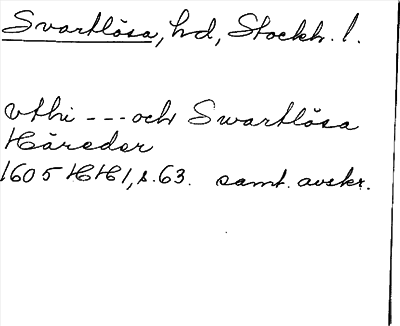 Svartlösa, hd, Stockh. l.
vthi --- och Swartlösa
Häreder
1605 HH1, s. 63. samt. avskr.